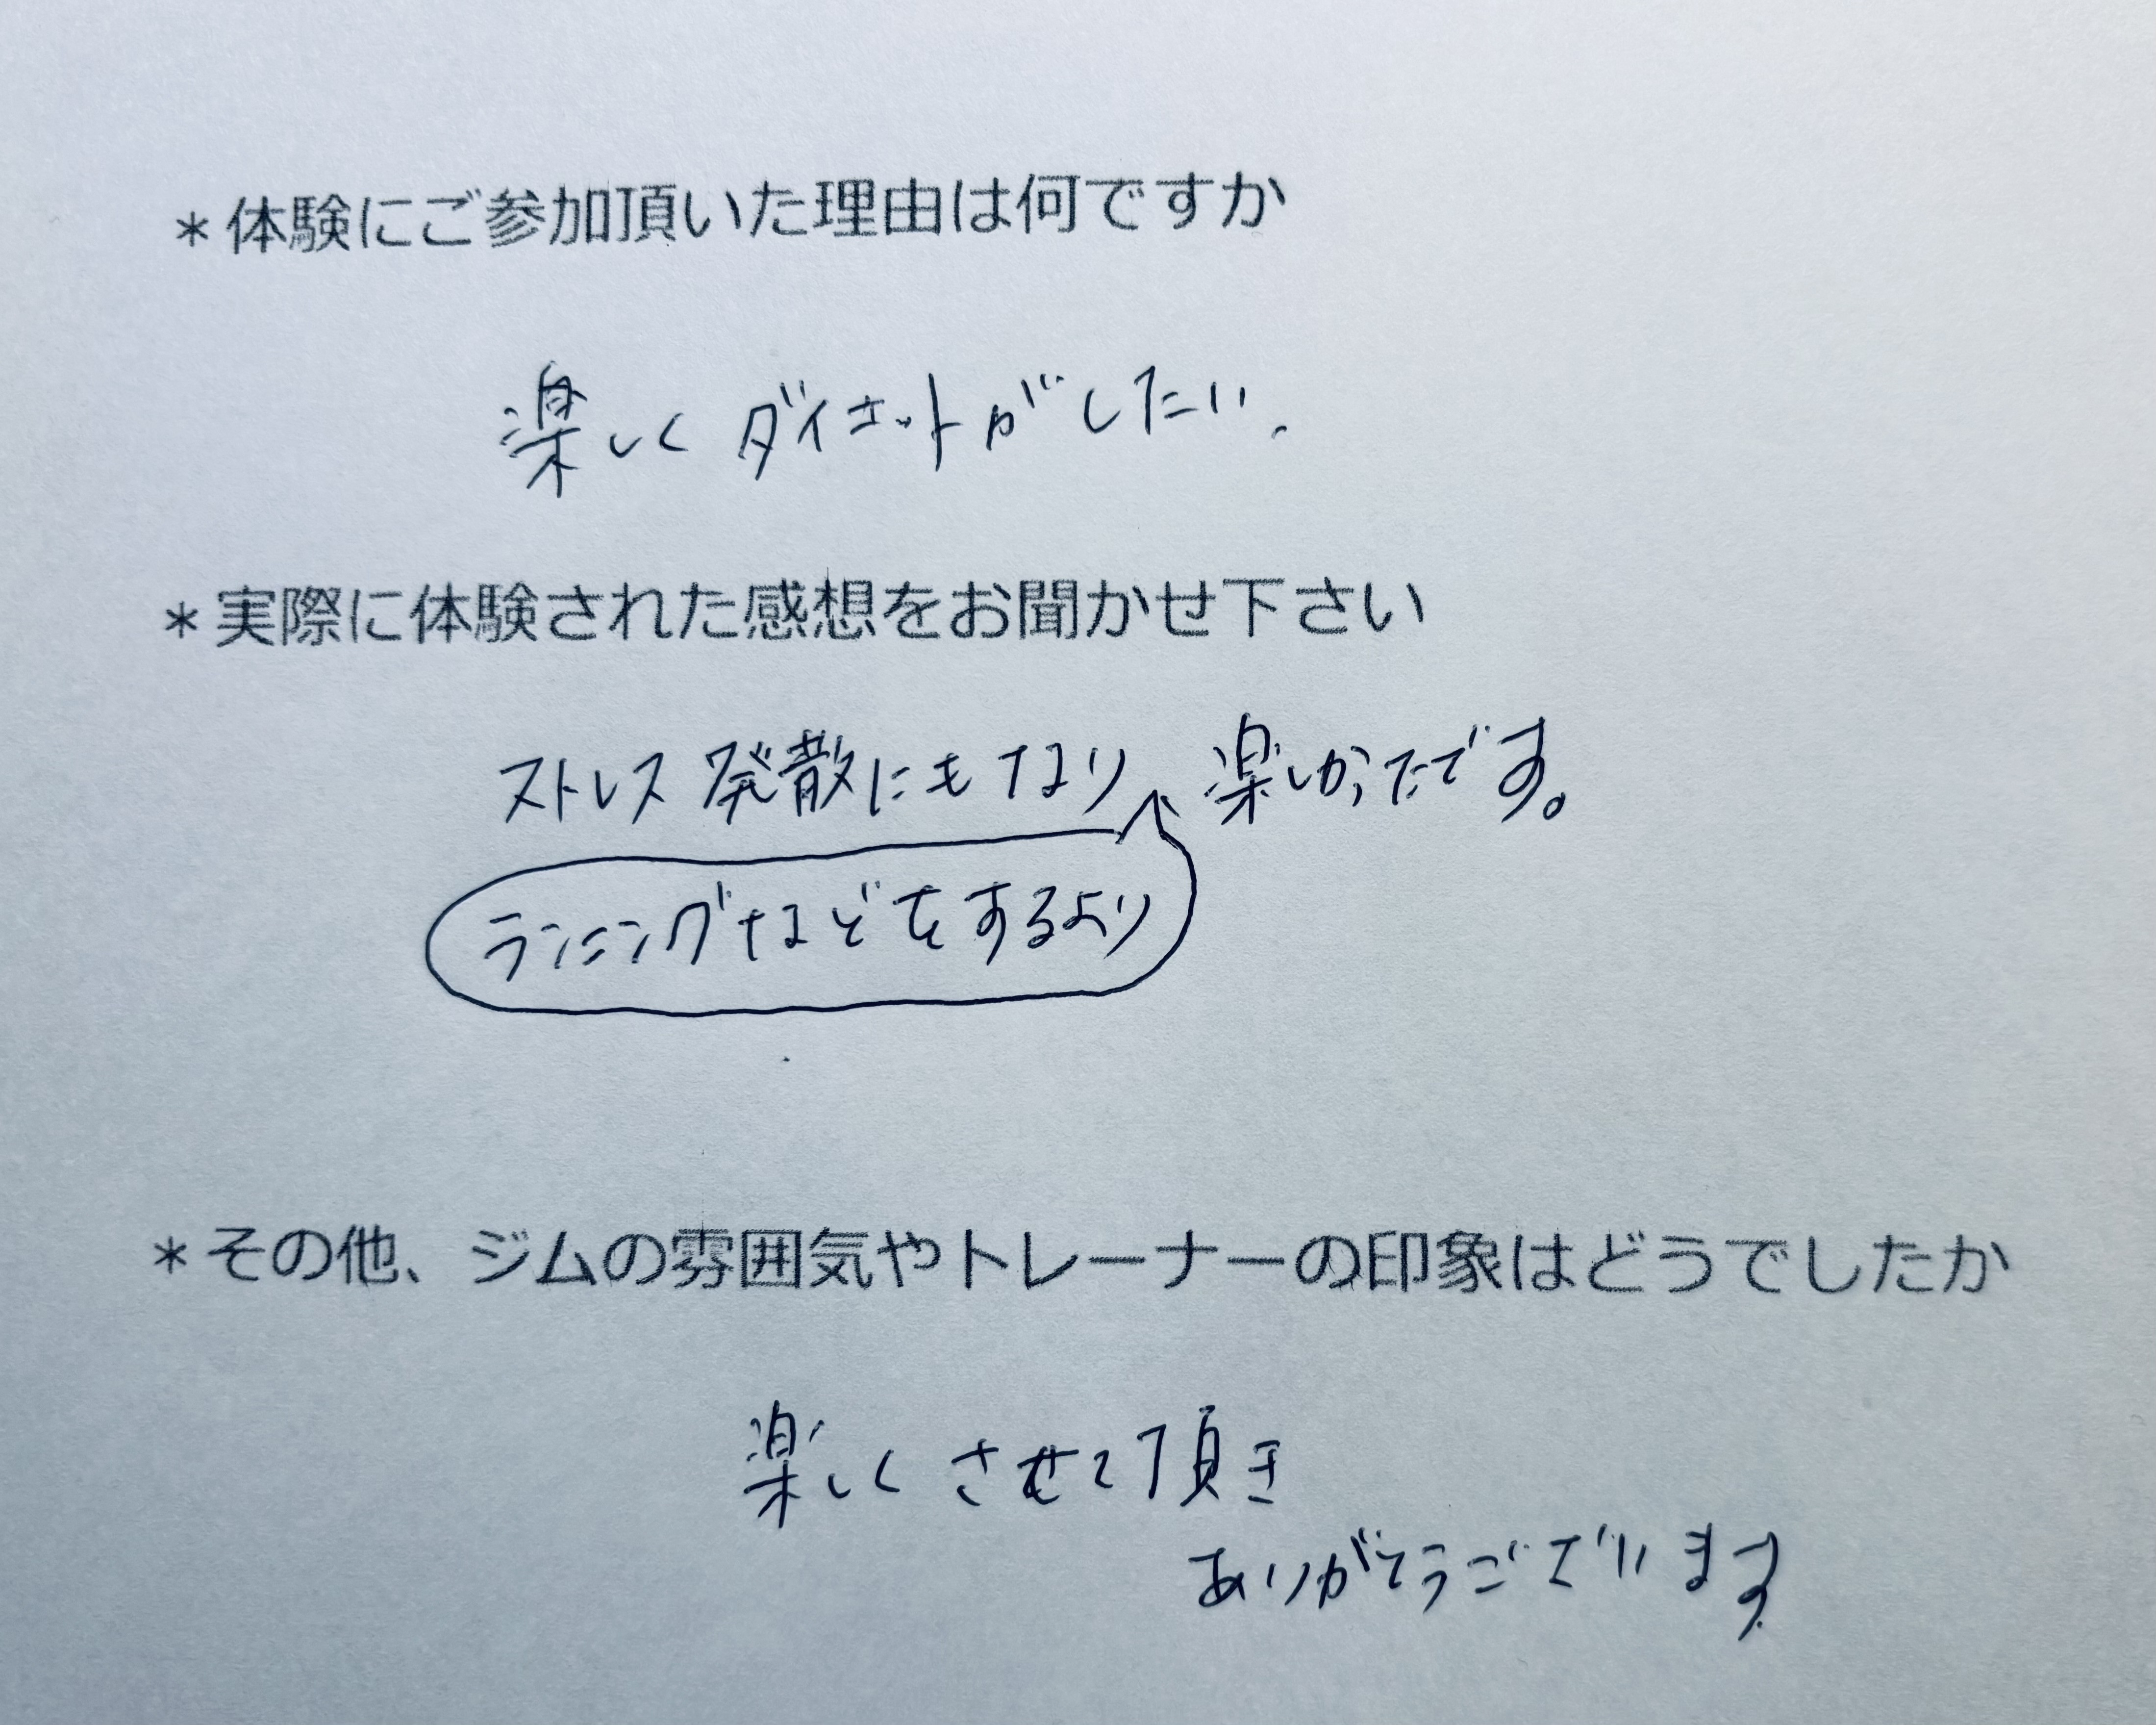 *体験にご参加頂いた理由は何ですか
楽しくダイエットがしたい.
*実際に体験された感想をお聞かせ下さい
ストレス発散にもなり 楽しかったです。
ランニングなどをするより
*その他、ジムの雰囲気やトレーナーの印象はどうでしたか
楽しくさせて頂き
ありがとうございます